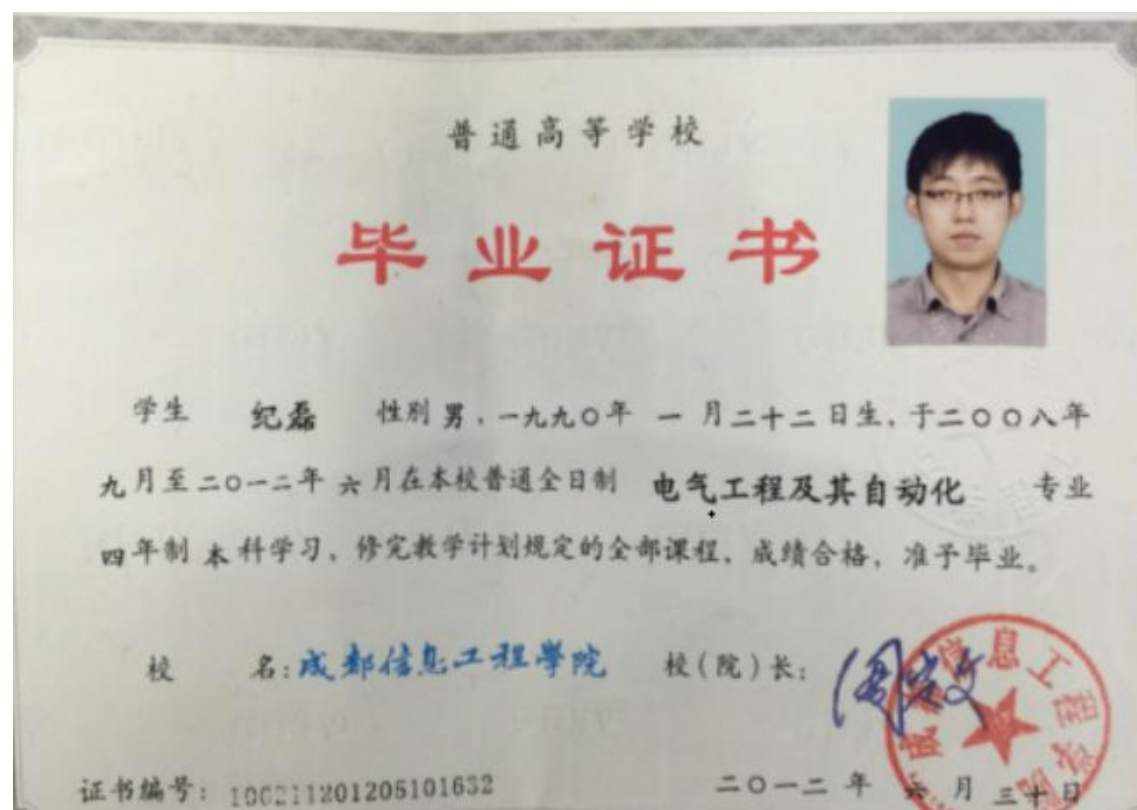 普通高等学校
毕业证书
学生 纪磊 性别 男，一九九〇年 一月二十二日生，于二〇〇八年
九月至二〇一二年 六月在本校普通全日制 电气工程及其自动化 专业
四年制 本科学习，修完教学计划规定的全部课程，成绩合格，准予毕业。
校 名：成都信息工程學院 校(院)长：周定文
证书编号：106211201205101632
二〇一二年 六月 三十日